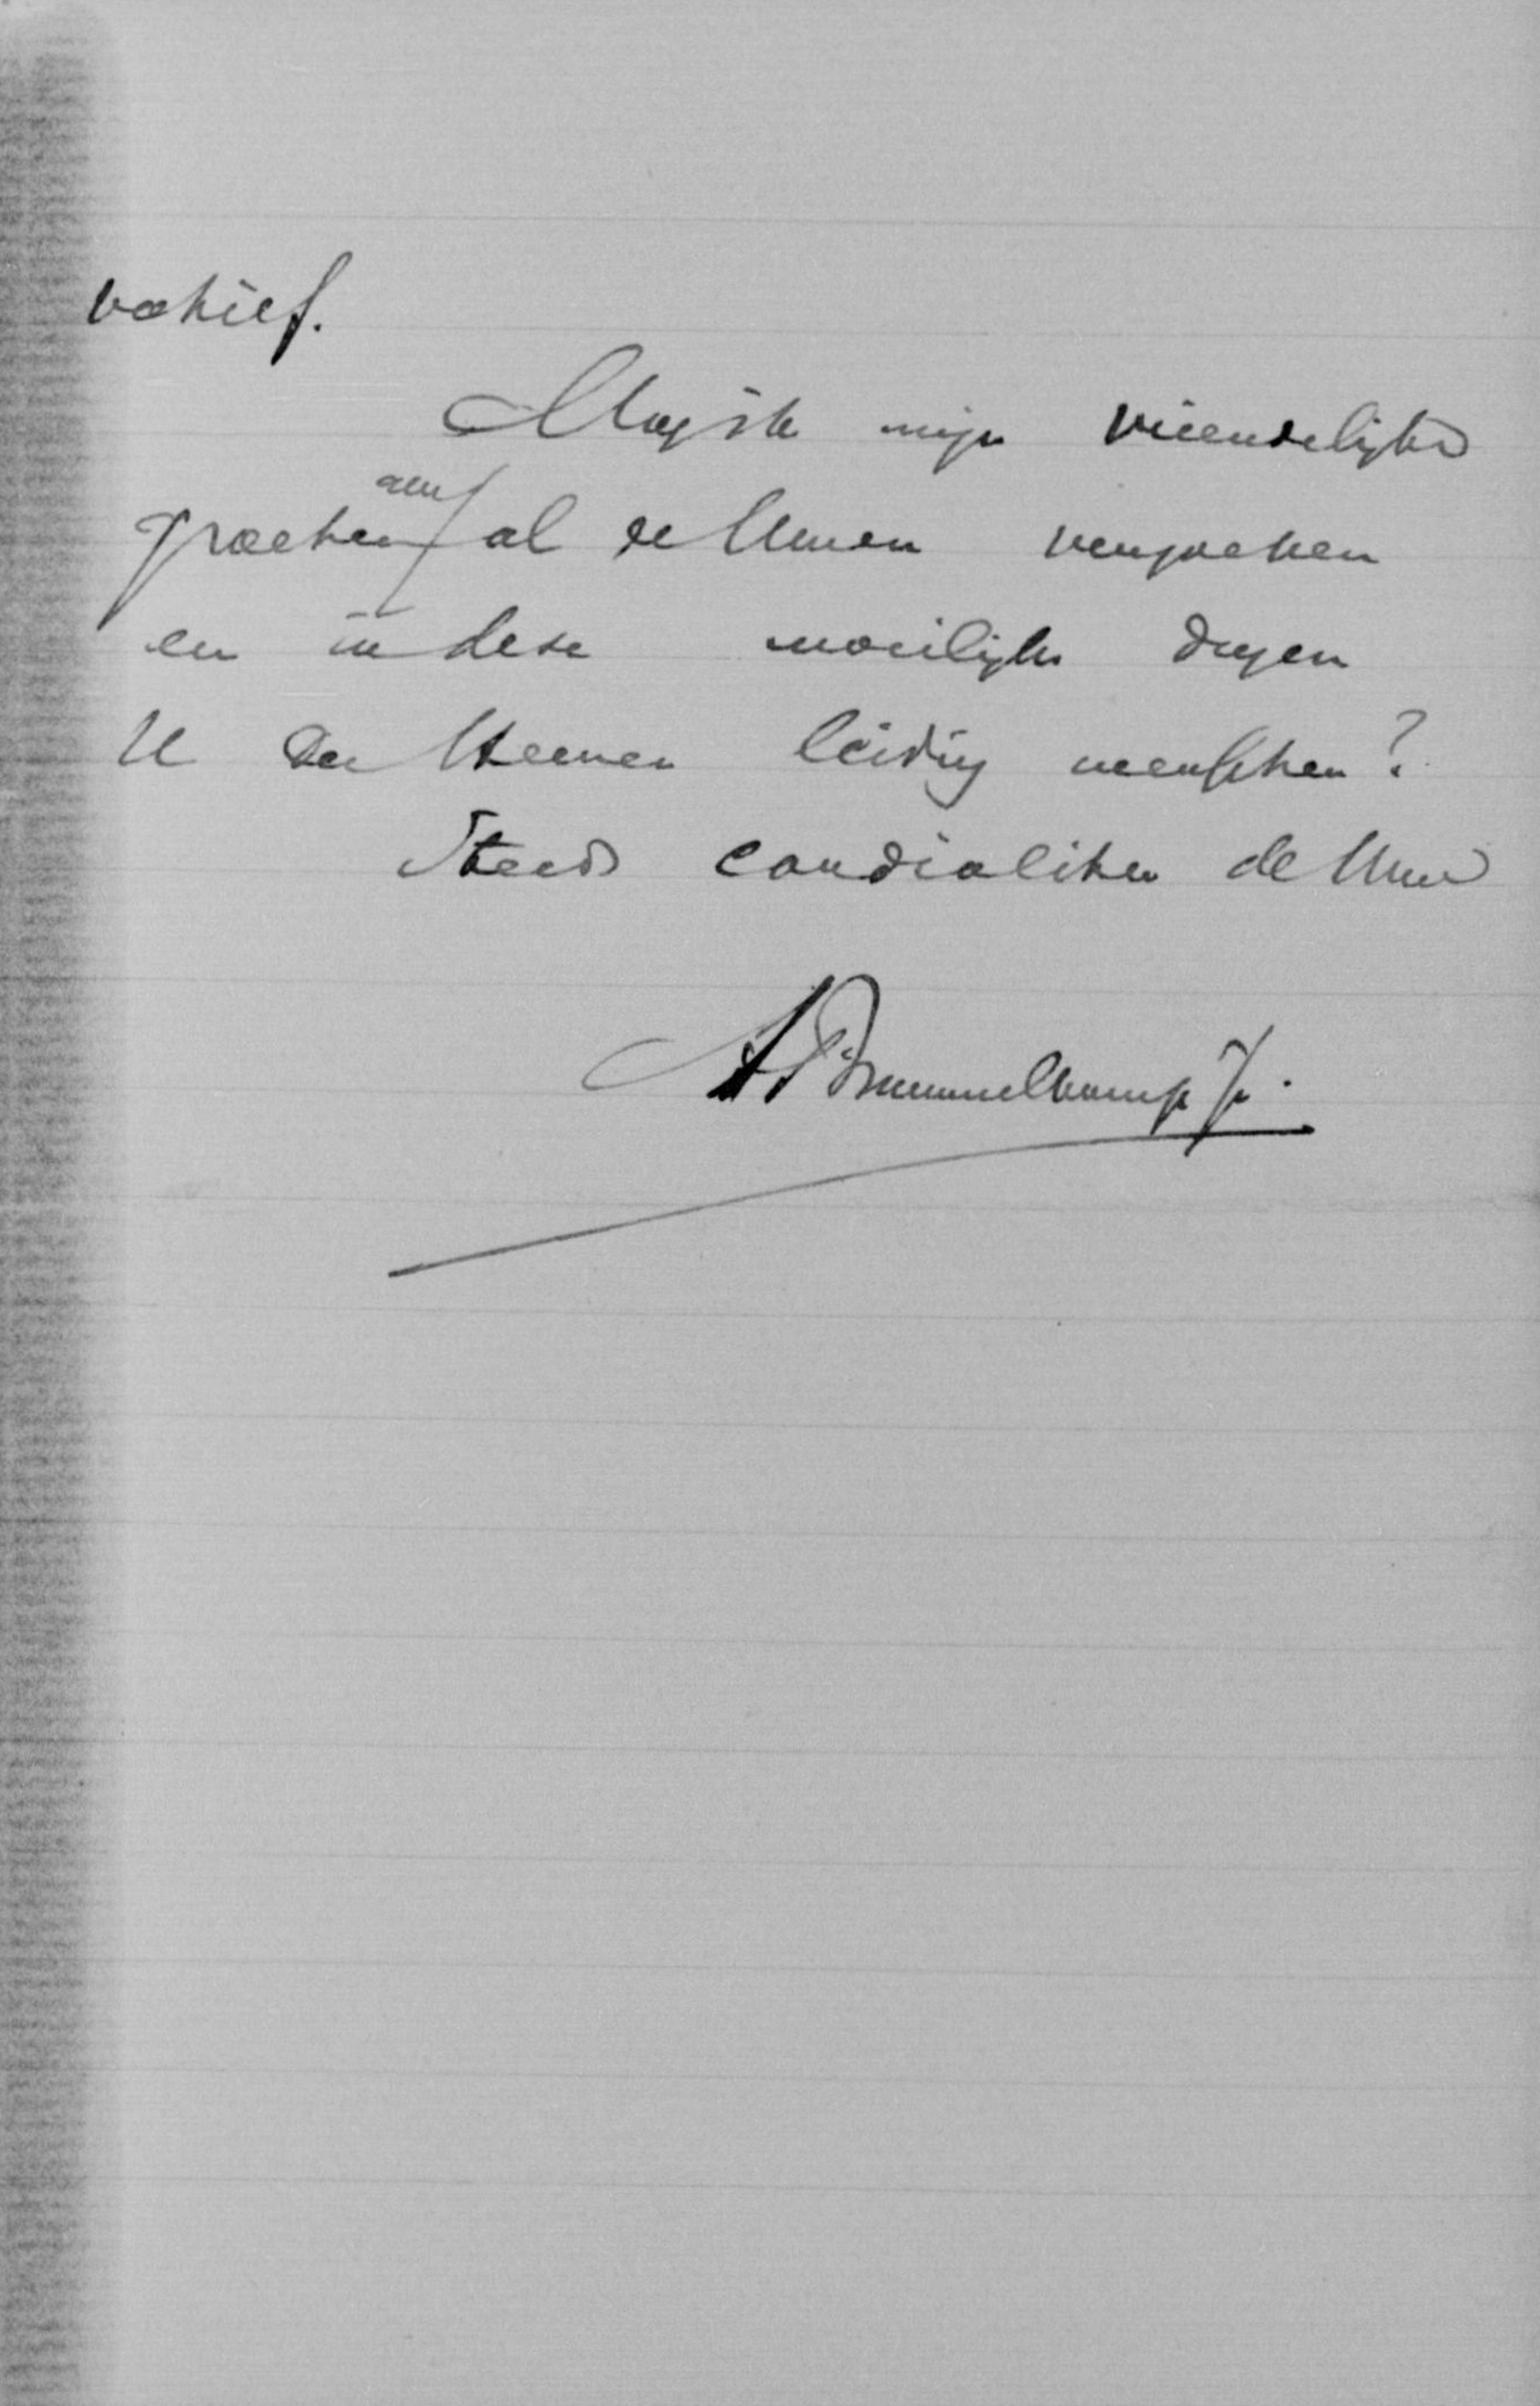 vohief.
Mag ik mijn vriendelijke
groeten aan al de Uwen verzoeken
en in deze moeilijke dagen
U des Heeren leiding wenschen?
Steeds cordialiter de Uwe
A Brummelkamp Jr.